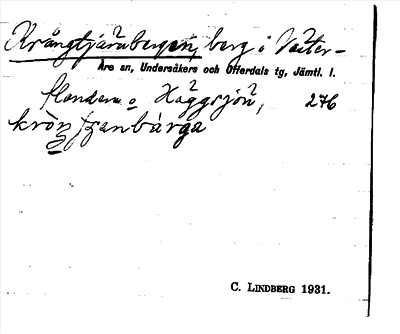 Krångtjärnbergen, berg i Väster-
Åre sn, Undersåkers och Offerdals tg, Jämtl. l.
flanden o Häggsjön, 276
C. LINDBERG 1931.